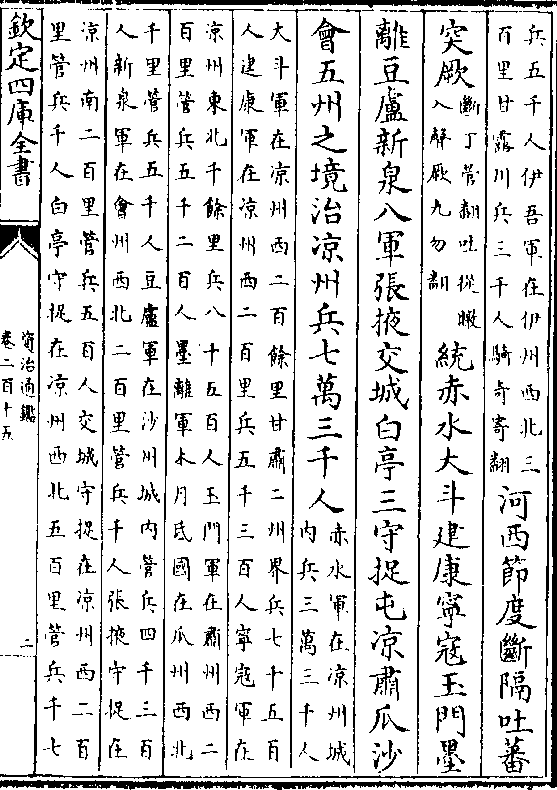 兵五千人伊吾軍在伊州西北三
百里甘露川兵三千人騎奇寄翻
河西節度斷隔吐蕃
突厥
斷丁管翻吐從暾
入聲厥九勿翻
統赤水大斗建康寧寇玉門墨
離豆盧新泉八軍張掖交城白亭三守捉屯凉肅瓜沙
會五州之境治凉州兵七萬三千人
赤水軍在凉州城
内兵三萬三千人
大斗軍在凉州西二百餘里甘肅二州界兵七千五百
人建康軍在凉州西二百里兵五千三百人寧寇軍在
凉州東北千餘里兵八十五百人玉門軍在肅州西二
百里管兵五千二百人墨離軍本月氏國在瓜州西北
千里管兵五千人豆盧軍在沙州城内管兵四千三百
人新泉軍在會州西北二百里管兵千人張掖守捉在
凉州南二百里管兵五百人交城守捉在凉州西二百
里管兵千人白亭守捉在凉州西北五百里管兵千七
欽定四庫全書
資治通鑑
卷二百十五
二